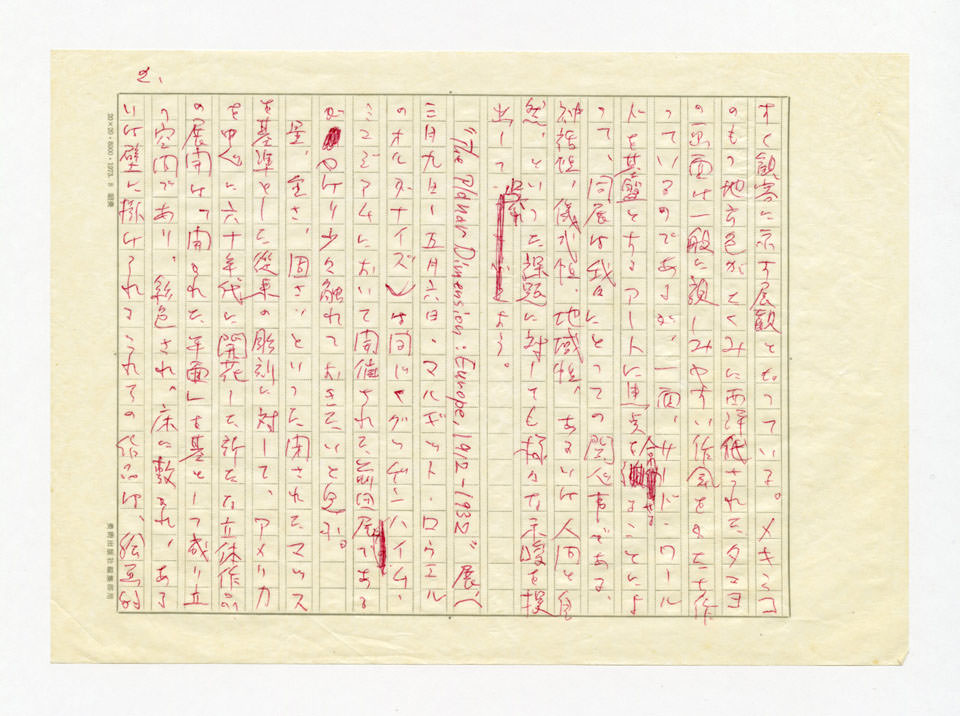 2.
すく観客に示す展観となっている。メキシコ
のもつ地方色がたくみに西洋化されたタマヨ
の画面は一般に親しみやすい作風をかたち作
っているのであるが、一面、サード・ワール
ドを基盤とするアートに焦点を合わせることによ
って、同展は我々にとっての関心事である、
神話性、儀式性、地域性、あるいは人間と自
然、といった課題に対しても様々な示唆を提
出して
よう。
"The Planar Dimension: Europe, 1912-1932" 展(
三月九日―五月六日・マルギット・ロウエル
のオルガナイズ)は同じくグッゲンハイム・
ミュジアムにおいて開催された前回展である
が やはり少々触れておきたいと思う。
量、重さ、固さ、といった閉されたマッス
を基準とした従来の彫刻に対して、アメリカ
を中心に六十年代に開花した新たな立体作品
の展開は「開かれた平面」を基として成り立
つ空間であり、彩色され、床に敷かれ、ある
いは壁に掛けられるこれらの作品は、絵画的
20×20・8000・1973.8
美術出版社編集部用